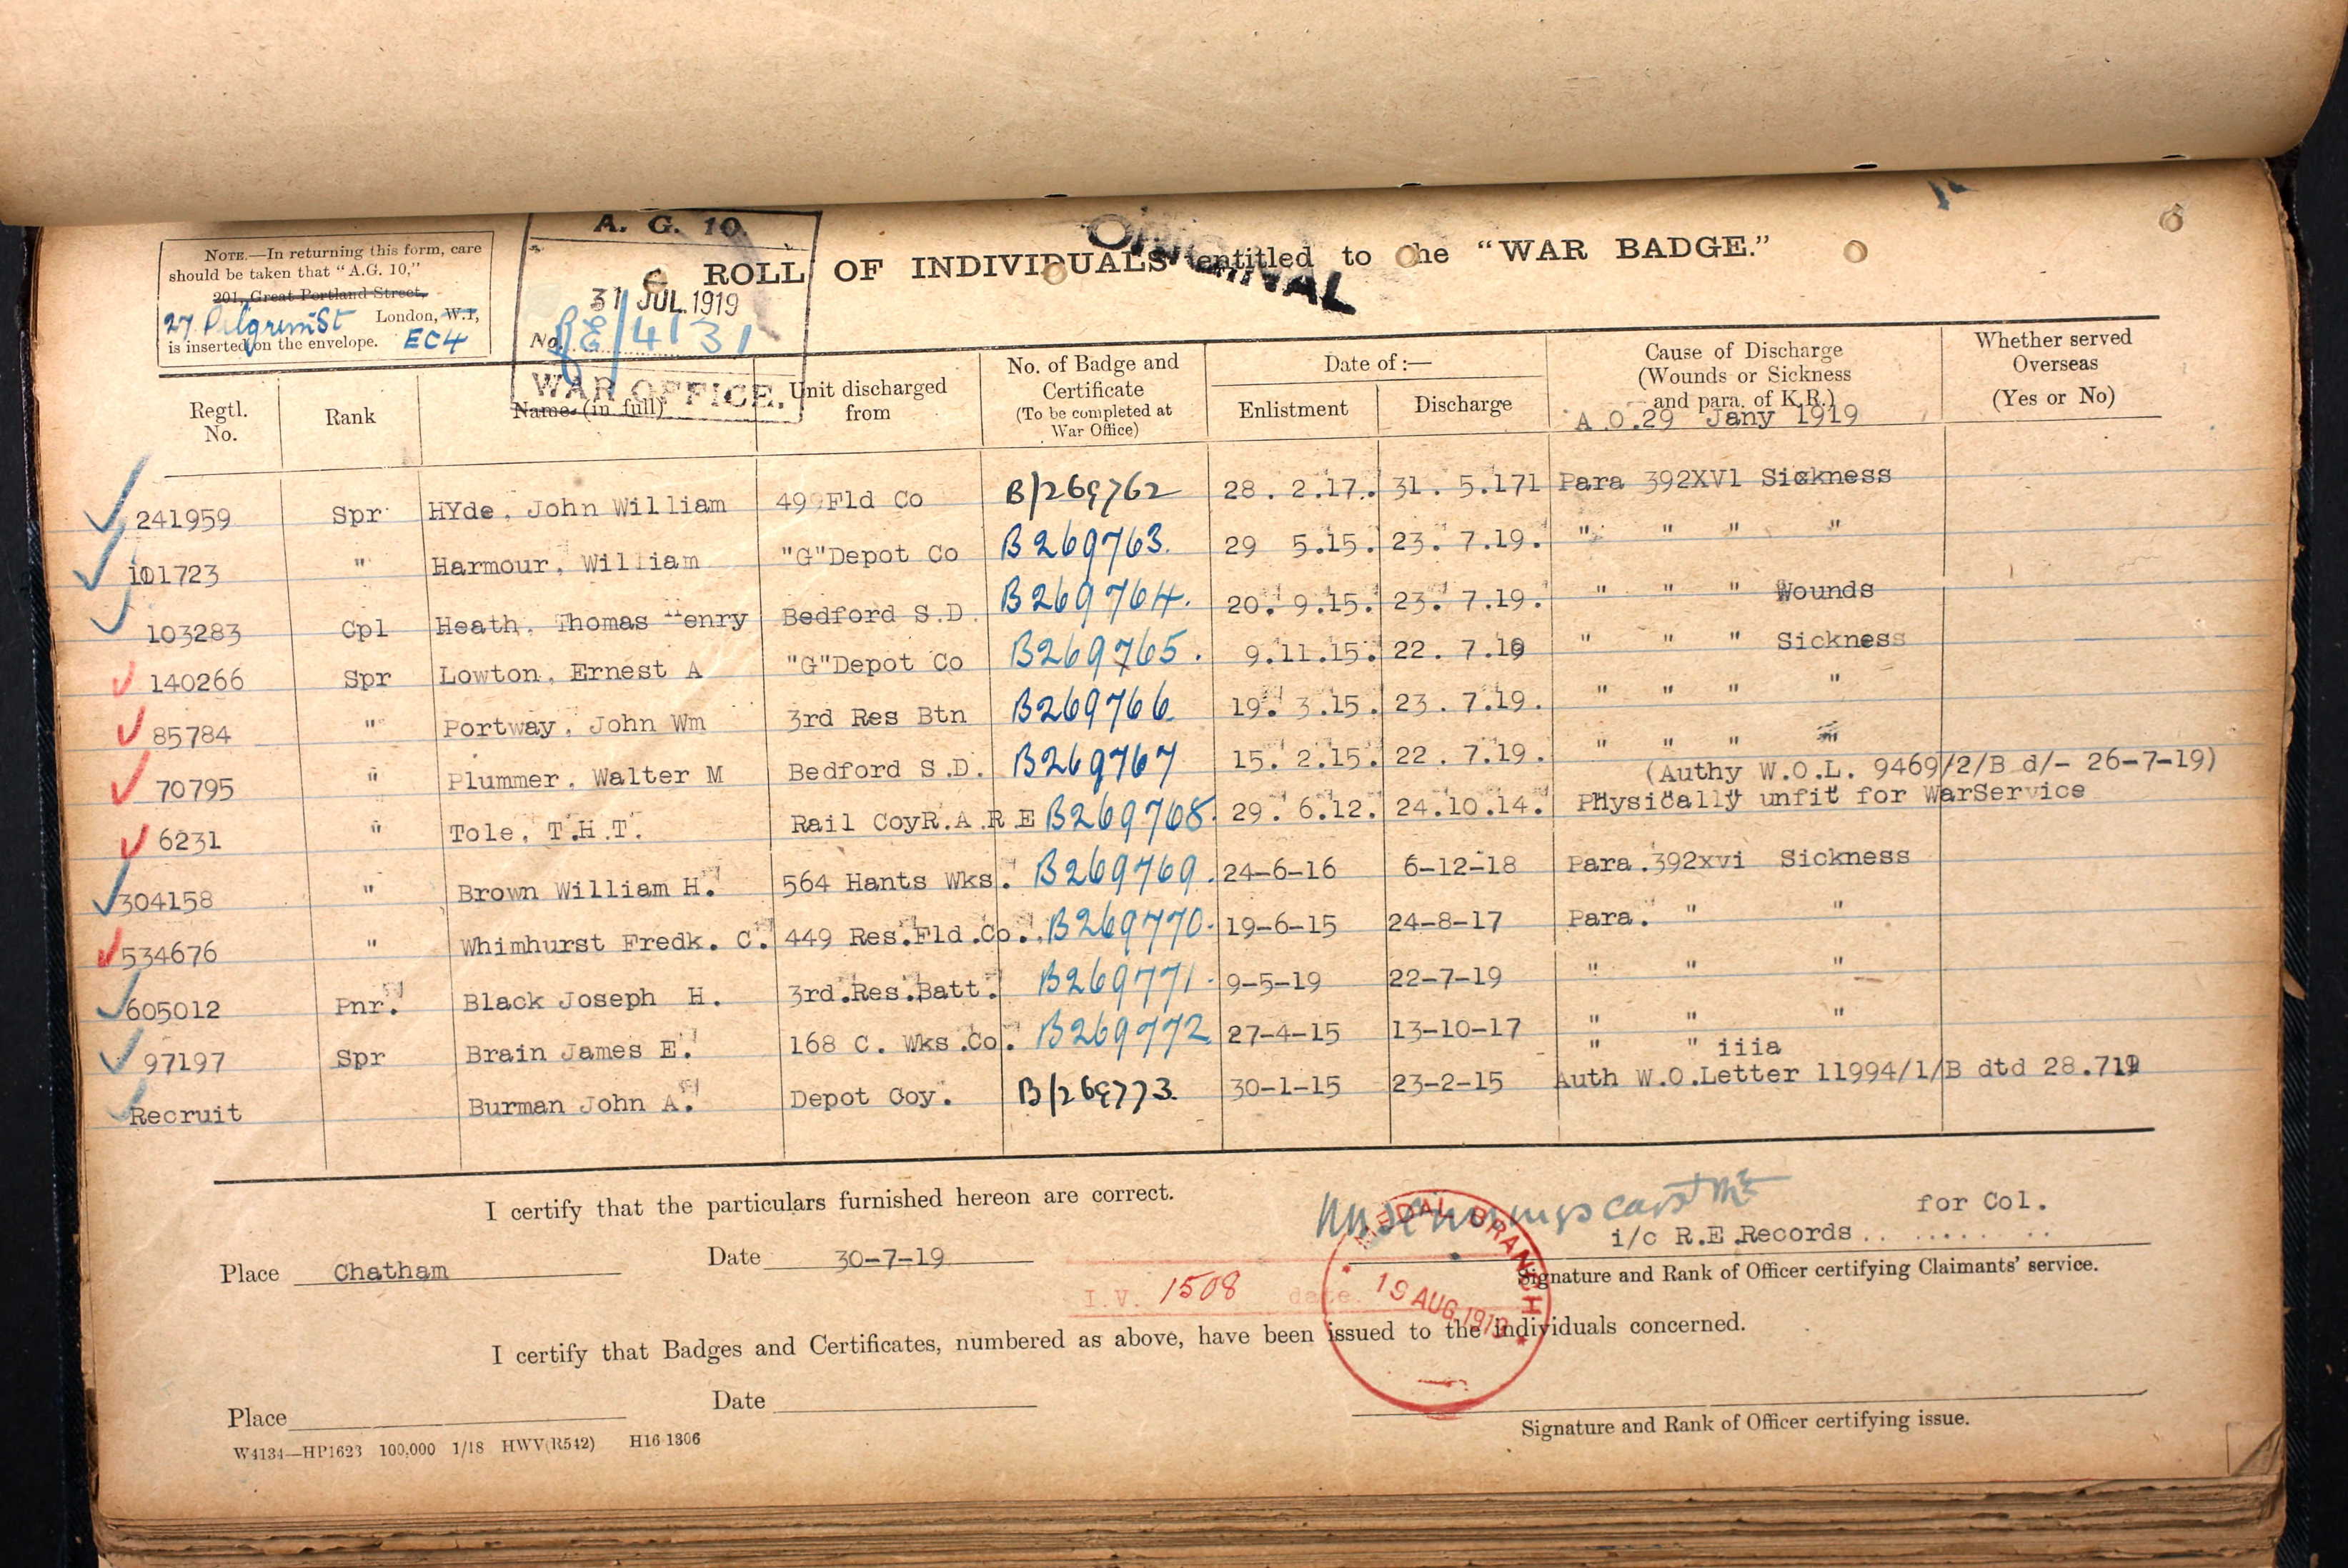 NOTE.—In returning this form, care
should be taken that "A.G. 10,"
201, Great Portland Street,
27 Pilgrim St London, W.1,
EC4
is inserted on the envelope.
A. G. 10.
31 JUL. 1919
No. RE/4131
WAR OFFICE.
ORIGINAL
ROLL OF INDIVIDUALS entitled to the "WAR BADGE."
Regtl. No. Rank Name (in full) Unit discharged from No. of Badge and Certificate (To be completed at War Office) Date of :— Enlistment Discharge Cause of Discharge (Wounds or Sickness and para. of K.R.) Whether served Overseas (Yes or No)
A.O.29 Jany 1919
241959 Spr HYde, John William 499 Fld Co B/269762 28. 2.17. 31. 5.171 Para 392XVl Sickness
101723 " Harmour, William "G"Depot Co B269763. 29 5.15. 23. 7.19. " " " "
103283 Cpl Heath, Thomas Henry Bedford S.D. B269764. 20. 9.15. 23. 7.19. " " " Wounds
140266 Spr Lowton, Ernest A "G"Depot Co B269765. 9.11.15. 22. 7.19 " " " Sickness
85784 " Portway, John Wm 3rd Res Btn B269766. 19. 3.15. 23. 7.19. " " " "
70795 " Plummer, Walter M Bedford S.D. B269767 15. 2.15. 22. 7.19. " " " "
(Authy W.O.L. 9469/2/B d/- 26-7-19)
6231 " Tole, T.H.T. Rail CoyR.A.R.E B269768. 29. 6.12. 24.10.14. Physically unfit for WarService
304158 " Brown William H. 564 Hants Wks. B269769. 24-6-16 6-12-18 Para.392xvi Sickness
534676 " Whimhurst Fredk. C. 449 Res.Fld.Co. B269770. 19-6-15 24-8-17 Para. " "
605012 Pnr. Black Joseph H. 3rd.Res.Batt. B269771. 9-5-19 22-7-19 " " "
97197 Spr Brain James E. 168 C. Wks.Co. B269772 27-4-15 13-10-17 " " "
" " iiia
Recruit Burman John A. Depot Coy. B/269773. 30-1-15 23-2-15 Auth W.O.Letter 11994/1/B dtd 28.719
I certify that the particulars furnished hereon are correct.
for Col.
i/c R.E.Records
Place Chatham Date 30-7-19
Signature and Rank of Officer certifying Claimants' service.
MEDAL BRANCH
19 AUG. 1919
I.V. 1508 date
I certify that Badges and Certificates, numbered as above, have been issued to the Individuals concerned.
Place Date
Signature and Rank of Officer certifying issue.
W4134—HP1623 100,000 1/18 HWV(R542) H16 1306